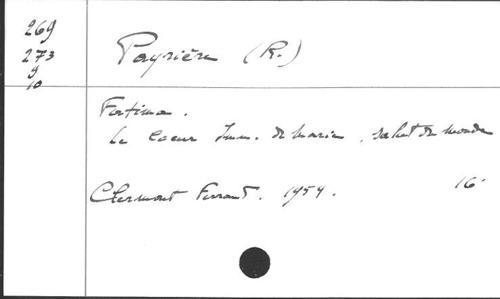 269
273
9
10
Payrière (R.)
Fatima.
Le Coeur Imm. de Marie, salut du monde
Clermont Ferrand. 1954. 16°